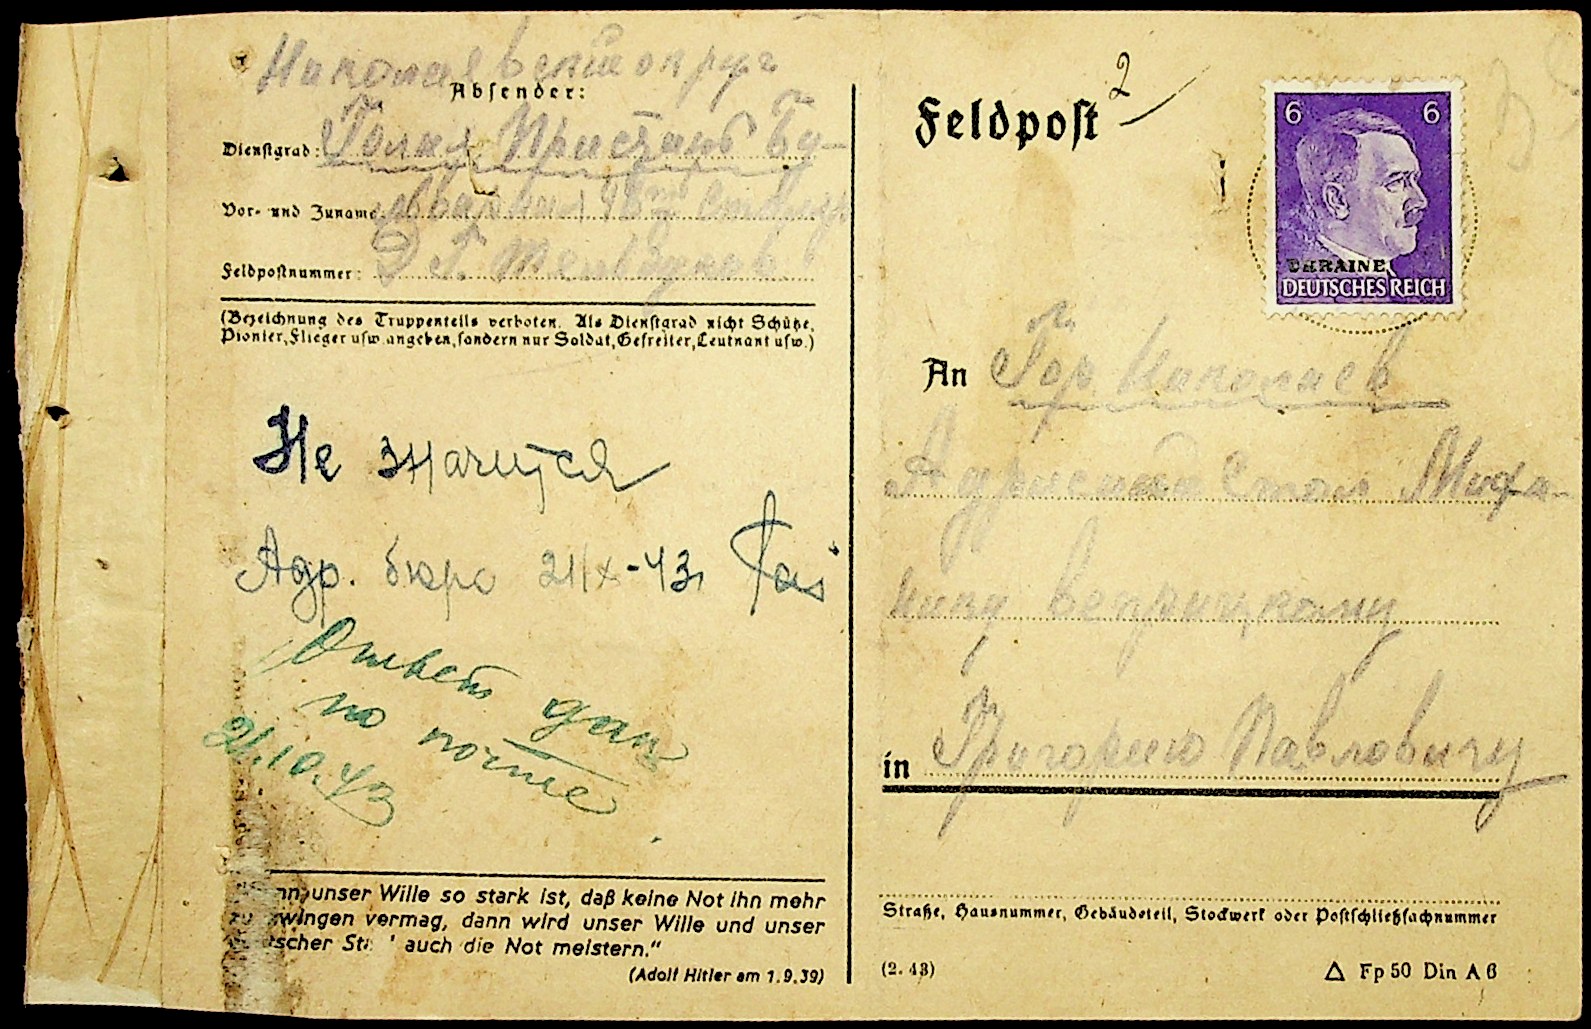 Николаевский округ
Absender:
Dienstgrad: Голая Пристань
Vor- und Zuname
Feldpostnummer:
(Bezeichnung des Truppenteils verboten. Als Dienstgrad nicht Schütze,
Pionier, Flieger usw. angeben, sondern nur Soldat, Gefreiter, Leutnant usw.)
Не значится
Адр. бюро 21/X-43
Ответ дан
по почте
21.10.43
unser Wille so stark ist, daß keine Not ihn mehr
zu zwingen vermag, dann wird unser Wille und unser
auch die Not meistern."
(Adolf Hitler am 1.9.39)
Feldpost 2
6 6
UKRAINE
DEUTSCHES REICH
An Гор. Николаев
Стол
in Григорию Павловичу
Straße, Hausnummer, Gebäudeteil, Stockwerk oder Postschließfachnummer
(2. 43)
△ Fp 50 Din A 6